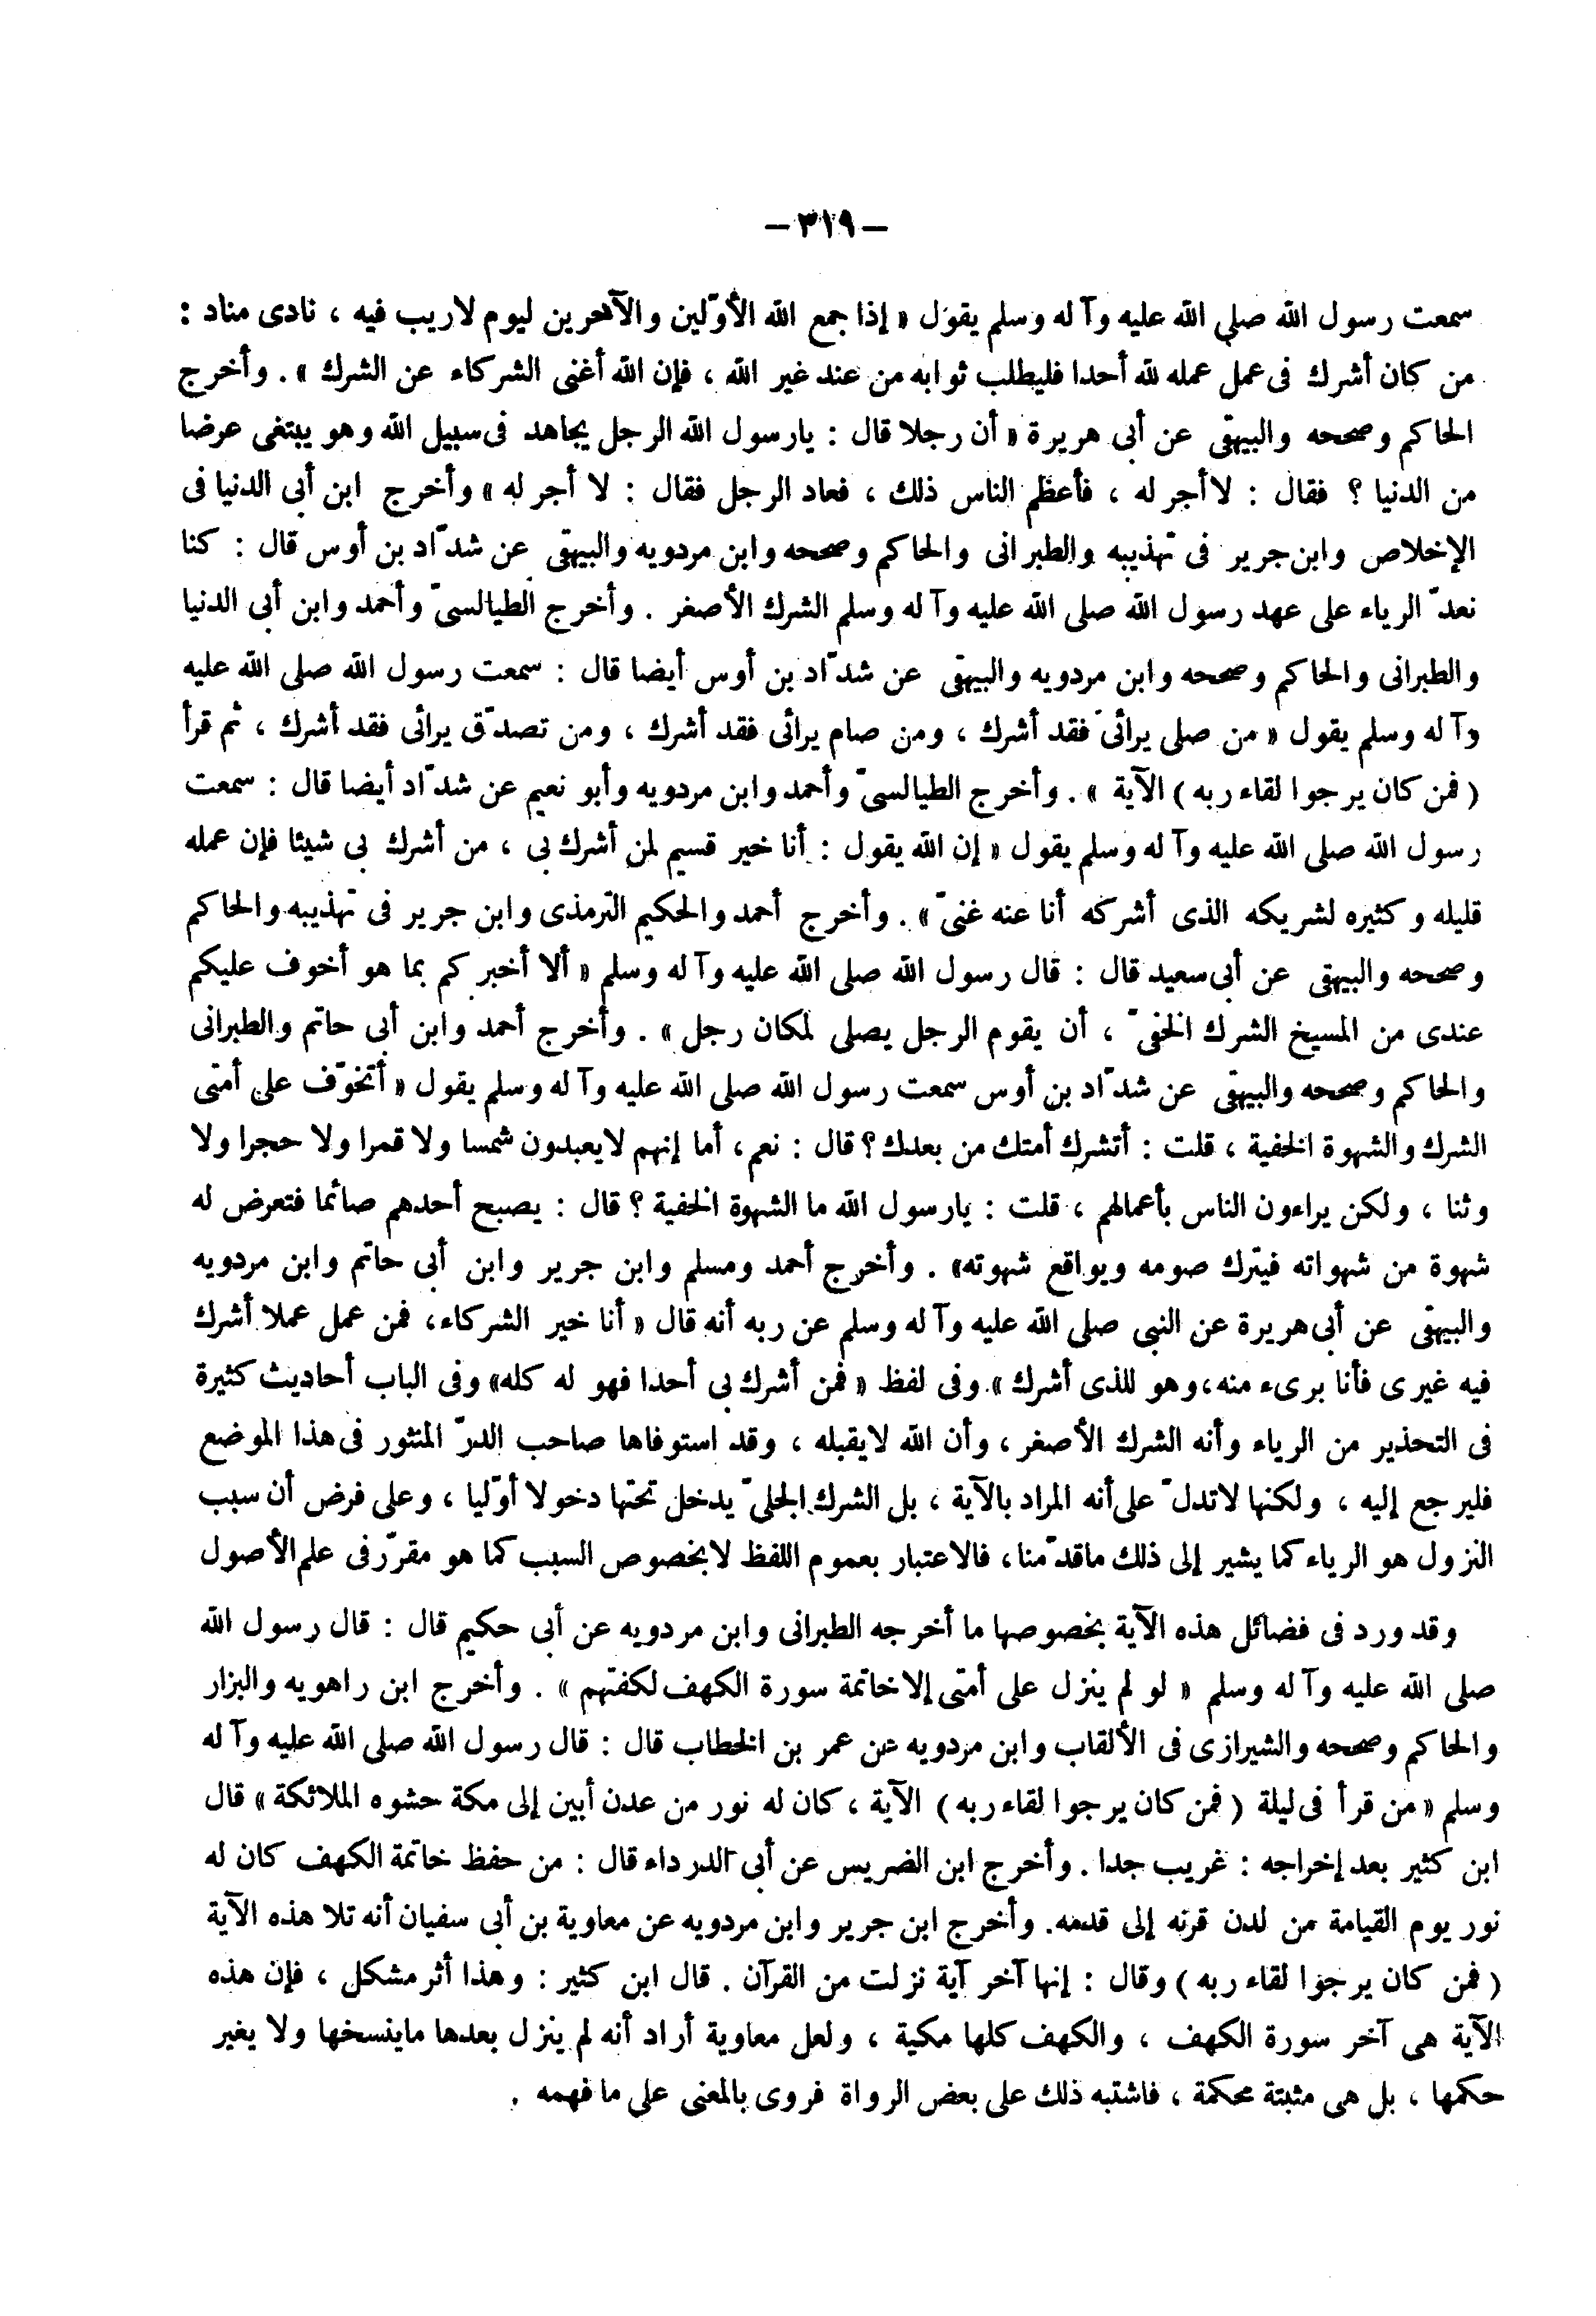 – ٣١٩ –
سمعت رسول الله صلى الله عليه وآله وسلم يقول « إذا جمع الله الأوّلين والآخرين ليوم لاريب فيه ، نادى مناد :
من كان أشرك فى عمل عمله لله أحدا فليطلب ثوابه من عند غير الله ، فإن الله أغنى الشركاء عن الشرك » . وأخرج
الحاكم وصححه والبيهقى عن أبى هريرة « أن رجلا قال : يارسول الله الرجل يجاهد فى سبيل الله وهو يبتغى عرضا
من الدنيا ؟ فقال : لا أجر له ، فأعظم الناس ذلك ، فعاد الرجل فقال : لا أجر له » وأخرج ابن أبى الدنيا فى
الإخلاص وابن جرير فى تهذيبه والطبرانى والحاكم وصححه وابن مردويه والبيهقى عن شدّاد بن أوس قال : كنا
نعدّ الرياء على عهد رسول الله صلى الله عليه وآله وسلم الشرك الأصغر . وأخرج الطيالسىّ وأحمد وابن أبى الدنيا
والطبرانى والحاكم وصححه وابن مردويه والبيهقى عن شدّاد بن أوس أيضا قال : سمعت رسول الله صلى الله عليه
وآله وسلم يقول « من صلى يرائى فقد أشرك ، ومن صام يرائى فقد أشرك ، ومن تصدّق يرائى فقد أشرك ، ثم قرأ
( فمن كان يرجوا لقاء ربه ) الآية » . وأخرج الطيالسىّ وأحمد وابن مردويه وأبو نعيم عن شدّاد أيضا قال : سمعت
رسول الله صلى الله عليه وآله وسلم يقول « إن الله يقول : أنا خير قسيم لمن أشرك بى ، من أشرك بى شيئا فإن عمله
قليله وكثيره لشريكه الذى أشركه أنا عنه غنىّ » . وأخرج أحمد والحكيم الترمذى وابن جرير فى تهذيبه والحاكم
وصححه والبيهقى عن أبى سعيد قال : قال رسول الله صلى الله عليه وآله وسلم « ألا أخبركم بما هو أخوف عليكم
عندى من المسيخ الشرك الخفىّ ، أن يقوم الرجل يصلى لمكان رجل » . وأخرج أحمد وابن أبى حاتم والطبرانى
والحاكم وصححه والبيهقى عن شدّاد بن أوس سمعت رسول الله صلى الله عليه وآله وسلم يقول « أتخوّف على أمتى
الشرك والشهوة الخفية ، قلت : أتشرك أمتك من بعدك ؟ قال : نعم ، أما إنهم لايعبدون شمسا ولا قمرا ولا حجرا ولا
وثنا ، ولكن يراءون الناس بأعمالهم ، قلت : يارسول الله ما الشهوة الخفية ؟ قال : يصبح أحدهم صائما فتعرض له
شهوة من شهواته فيترك صومه ويواقع شهوته» . وأخرج أحمد ومسلم وابن جرير وابن أبى حاتم وابن مردويه
والبيهقى عن أبى هريرة عن النبى صلى الله عليه وآله وسلم عن ربه أنه قال « أنا خير الشركاء، فمن عمل عملا أشرك
فيه غيرى فأنا برىء منه، وهو للذى أشرك ». وفى لفظ « فمن أشرك بى أحدا فهو له كله» وفى الباب أحاديث كثيرة
فى التحذير من الرياء وأنه الشرك الأصغر ، وأن الله لايقبله ، وقد استوفاها صاحب الدرّ المنثور فى هذا الموضع
فليرجع إليه ، ولكنها لاتدلّ على أنه المراد بالآية ، بل الشرك الجلىّ يدخل تحتها دخولا أوّليا ، وعلى فرض أن سبب
النزول هو الرياء كما يشير إلى ذلك ماقدّمنا، فالاعتبار بعموم اللفظ لابخصوص السبب كما هو مقرّر فى علم الأصول
وقد ورد فى فضائل هذه الآية بخصوصها ما أخرجه الطبرانى وابن مردويه عن أبى حكيم قال : قال رسول الله
صلى الله عليه وآله وسلم « لو لم ينزل على أمتى إلا خاتمة سورة الكهف لكفتهم » . وأخرج ابن راهويه والبزار
والحاكم وصححه والشيرازى فى الألقاب وابن مردويه عن عمر بن الخطاب قال : قال رسول الله صلى الله عليه وآله
وسلم « من قرأ فى ليلة ( فمن كان يرجوا لقاء ربه ) الآية ، كان له نور من عدن أبين إلى مكة حشوه الملائكة » قال
ابن كثير بعد إخراجه : غريب جدا . وأخرج ابن الضريس عن أبى الدرداء قال : من حفظ خاتمة الكهف كان له
نور يوم القيامة من لدن قرنه إلى قدمه. وأخرج ابن جرير وابن مردويه عن معاوية بن أبى سفيان أنه تلا هذه الآية
( فمن كان يرجوا لقاء ربه ) وقال : إنها آخر آية نزلت من القرآن . قال ابن كثير : وهذا أثر مشكل ، فإن هذه
الآية هى آخر سورة الكهف ، والكهف كلها مكية ، ولعل معاوية أراد أنه لم ينزل بعدها ماينسخها ولا يغير
حكمها ، بل هى مثبتة محكمة ، فاشتبه ذلك على بعض الرواة فروى بالمعنى على ما فهمه .